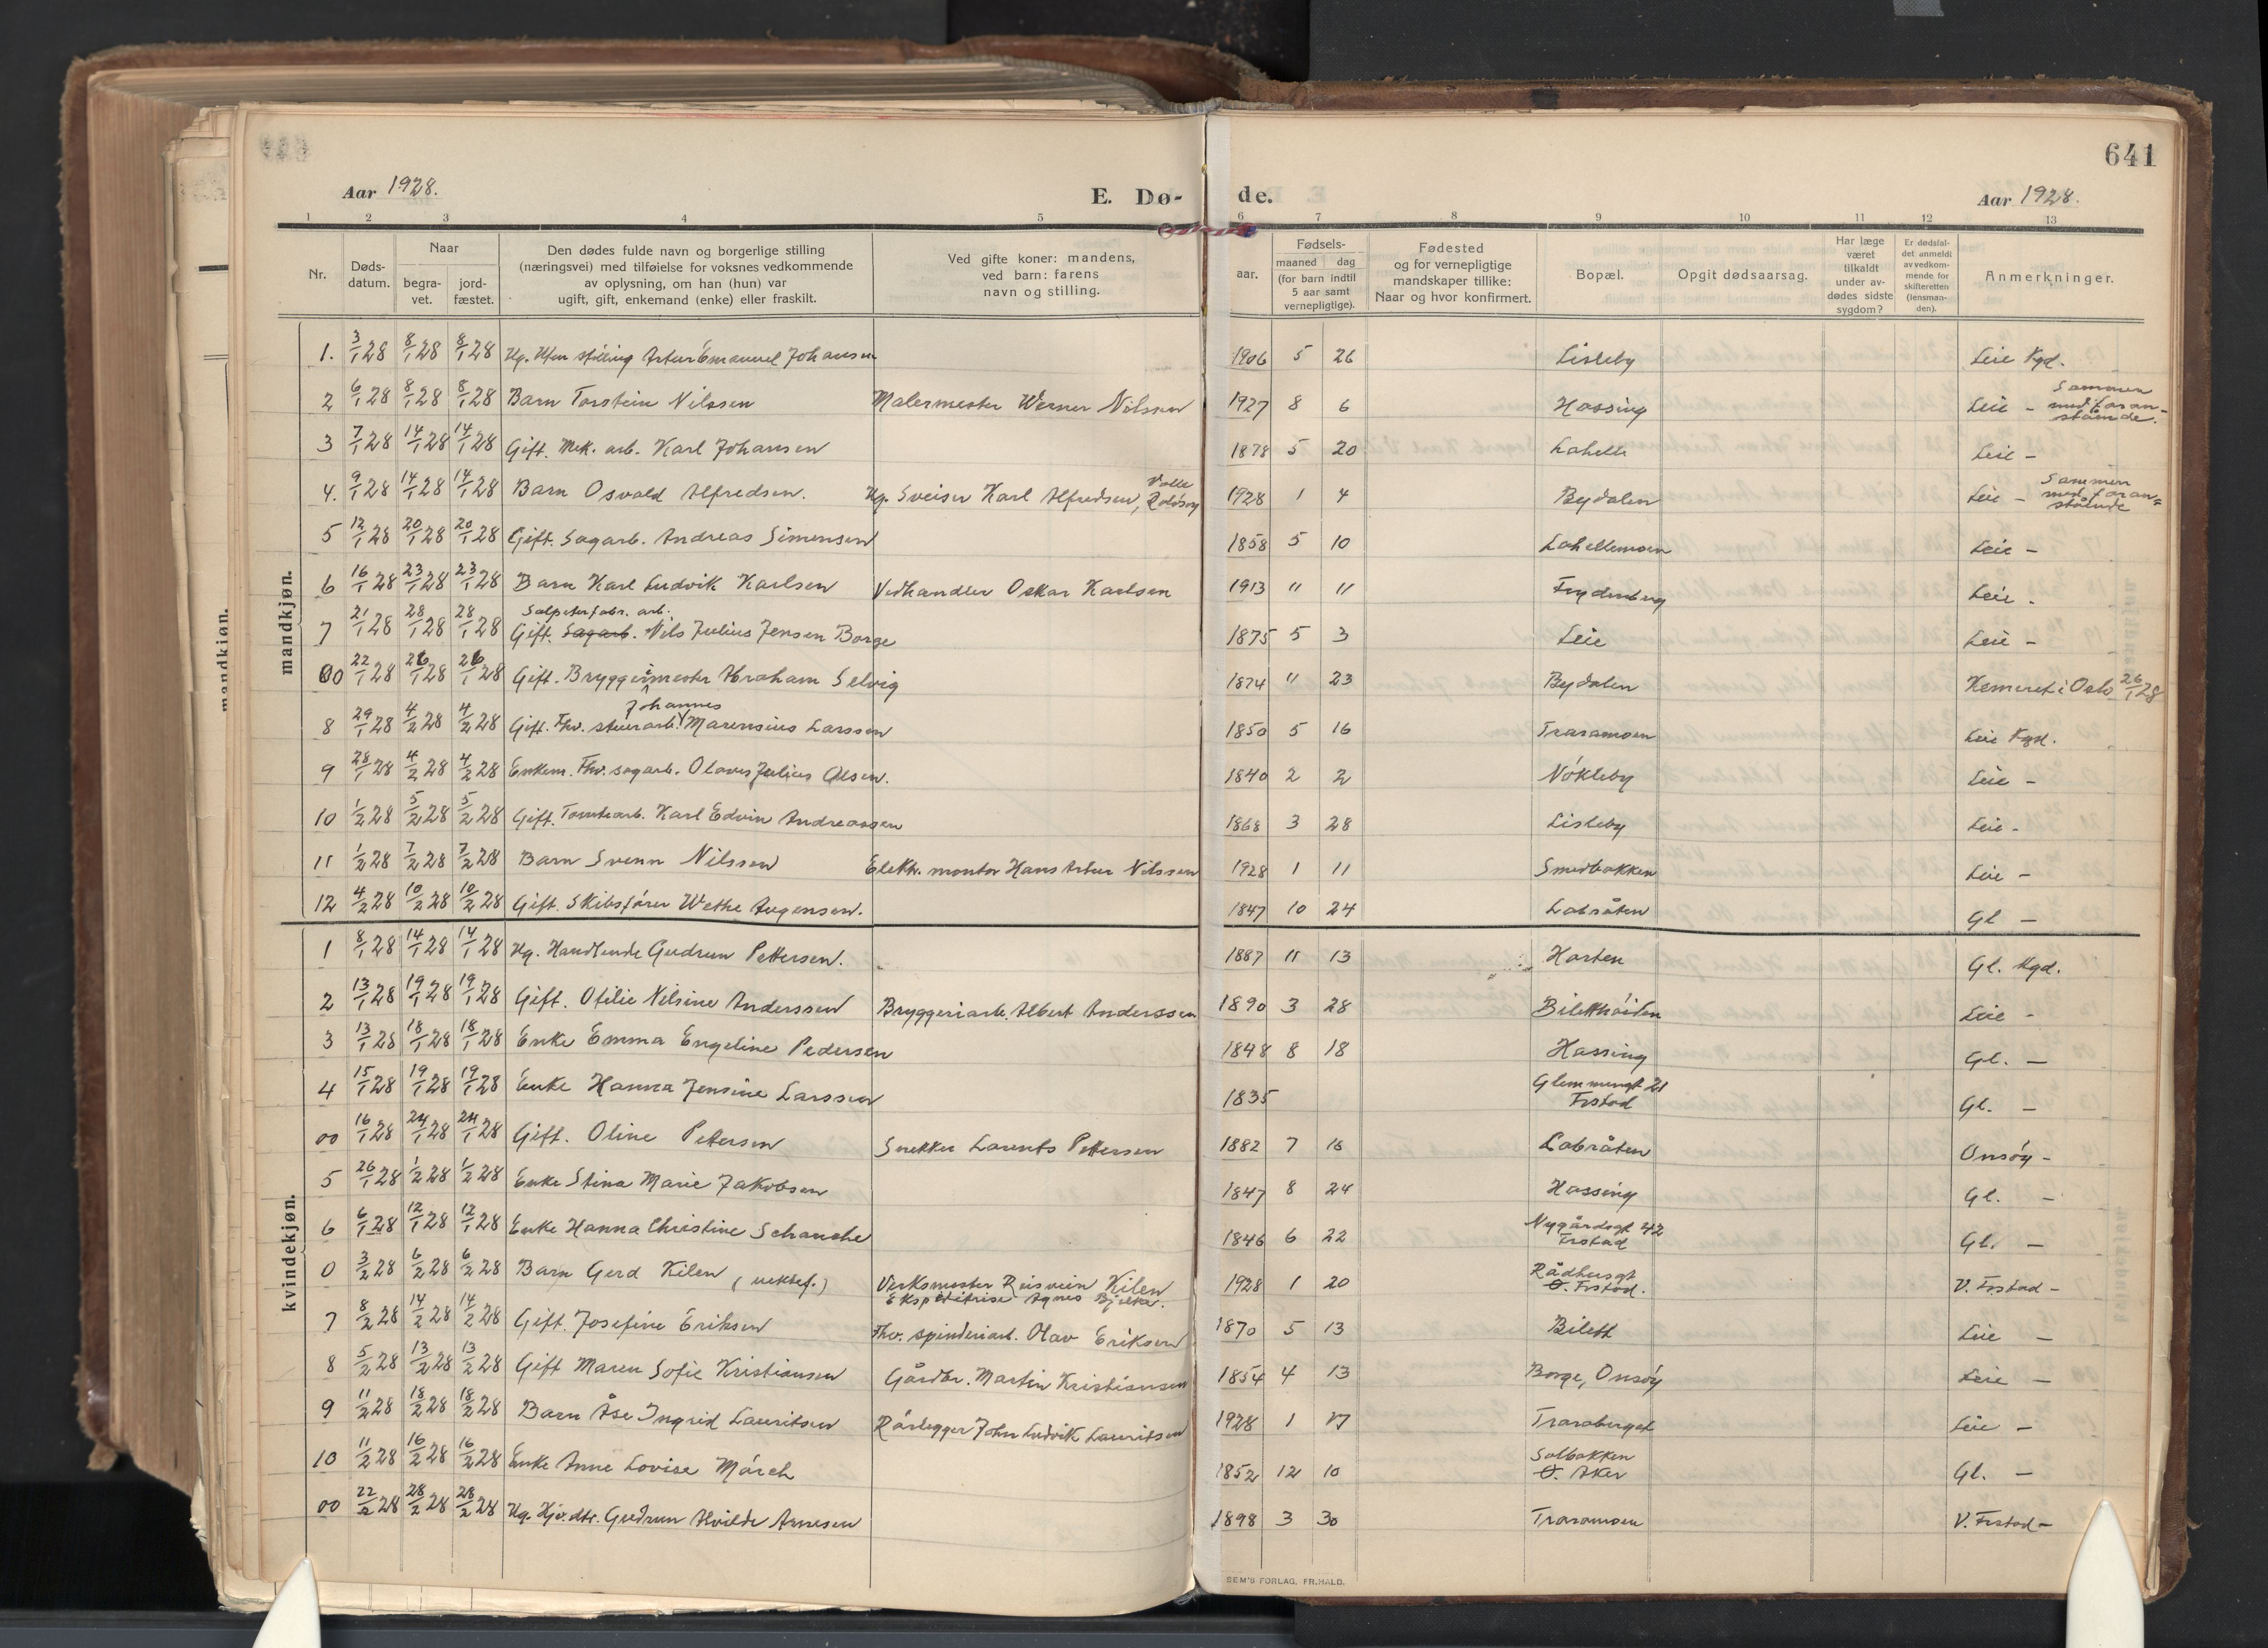 641
Aar 1928.
E. Dø-
de.
Aar 1928.
1 2 3 4 5 6 7 8 9 10 11 12 13
Nr.
Døds-
datum.
Naar
begra-
vet.
jord-
fæstet.
Den dødes fulde navn og borgerlige stilling
(næringsvei) med tilføielse for voksnes vedkommende
av oplysning, om han (hun) var
ugift, gift, enkemand (enke) eller fraskilt.
Ved gifte koner: mandens,
ved barn: farens
navn og stilling.
aar.
Fødsels-
maaned dag
(for barn indtil
5 aar samt
vernepligtige).
Fødested
og for vernepligtige
mandskaper tillike:
Naar og hvor konfirmert.
Bopæl.
Opgit dødsaarsag.
Har læge
været
tilkaldt
under av-
dødes sidste
sygdom?
Er dødsfal-
det anmeldt
av vedkom-
mende for
skifteretten
(lensman-
den).
Anmerkninger.
mandkjøn.
mandkjøn.
1. 3/1 28 8/1 28 8/1 28 Ug. Uten stilling Artur Emanuel Johansen 1906 5 26 Lisleby Leie Kgd.
2 6/1 28 8/1 28 8/1 28 Barn Torstein Nilssen Malermester Werner Nilssen 1927 8 6 Hassing Leie - Sammen med foranstående.
3 7/1 28 14/1 28 14/1 28 Gift. Mek. arb. Karl Johansen 1878 5 20 Lahelle Leie -
4. 9/1 28 14/1 28 14/1 28 Barn Osvald Alfredsen. Ug. Sveiser Karl Alfredsen, Valle Rolvsøy 1928 1 4 Bydalen Leie - Sammen med foran=stående
5 12/1 28 20/1 28 20/1 28 Gift. Sagarb. Andreas Simensen 1858 5 10 Lahellemoen Leie -
6 16/1 28 23/1 28 23/1 28 Barn Karl Ludvik Karlsen Vedhandler Oskar Karlsen 1913 11 11 Frydenberg Leie -
Salpeterfabr. arb.
7 21/1 28 28/1 28 28/1 28 Gift. Sagarb. Nils Julius Jensen Borge 1875 5 3 Leie Leie -
00 22/1 28 26/1 28 26/1 28 Gift. Bryggerimester Abraham Selvig 1874 11 23 Bydalen Kremeret i Oslo 26/1 28
Johannes
8 29/1 28 4/2 28 4/2 28 Gift. Fhv. stuerarb. Marensius Larssen 1850 5 16 Traramoen Leie Kgd.
9 28/1 28 4/2 28 4/2 28 Enkem. Fhv. sagarb. Olaves Julius Olsen. 1840 2 2 Nökleby Leie -
10 1/2 28 5/2 28 5/2 28 Gift. Tomtearb. Karl Edvin Andreassen 1868 3 28 Lisleby Leie -
11 1/2 28 7/2 28 7/2 28 Barn Svenn Nilssen Elektr. montør Hans Artur Nilssen 1928 1 11 Smedbakken Leie -
12 4/2 28 10/2 28 10/2 28 Gift. Skibsfører Wethe Augensen. 1847 10 24 Labråten Gl -
kvindekjøn.
1 8/1 28 14/1 28 14/1 28 Ug. Handlende Gudrun Pettersen. 1887 11 13 Holten Gl. Kgd.
2 13/1 28 19/1 28 19/1 28 Gift. Otilie Nilsine Anderssen Bryggeriarb. Albert Anderssen 1890 3 28 Biletthöiden Leie -
3 13/1 28 18/1 28 18/1 28 Enke Emma Engeline Pedersen 1848 8 18 Hassing Gl. -
4 15/1 28 19/1 28 19/1 28 Enke Hanna Jensine Larssen 1835 Glemmengt 21 Frstad Gl. -
00 16/1 28 24/1 28 24/1 28 Gift. Oline Pettersen Snekker Laurents Pettersen 1882 7 16 Labråten Onsöy -
5 26/1 28 1/2 28 1/2 28 Enke Stina Marie Jakobsen 1847 8 24 Hassing Gl. -
6 6/1 28 12/1 28 12/1 28 Enke Hanna Christine Schanche 1846 6 22 Nygårdsgt 42 Frstad Gl. -
0 3/2 28 6/2 28 6/2 28 Barn Gerd Kilen (uektef.) Verksmester Kilen Ekspeditrise Agnes Bjelke. 1928 1 20 Rådhusgt Ø. Frstad. V. Frstad -
7 8/2 28 14/2 28 14/2 28 Gift. Josefine Eriksen Fhv. spinneriarb. Olav Eriksen 1870 5 13 Bilett Leie -
8 5/2 28 13/2 28 13/2 28 Gift Maren Sofie Kristiansen Gårdbr. Martin Kristiansen 1854 4 13 Borge, Onsöy Leie -
9 11/2 28 18/2 28 18/2 28 Barn Åse Ingrid Lauritsen Rörlegger John Ludvik Lauritsen 1928 1 17 Traraberget Leie -
10 11/2 28 16/2 28 16/2 28 Enke Anne Lovise Mörch 1852 12 10 Solbakken Ø. Aker Gl. -
00 22/2 28 28/2 28 28/2 28 Ug. Hjv. dtr. Gudrun Alvilde Arnesen 1898 3 30 Traramoen V. Frstad -
SEM'S FORLAG, FR.HALD.